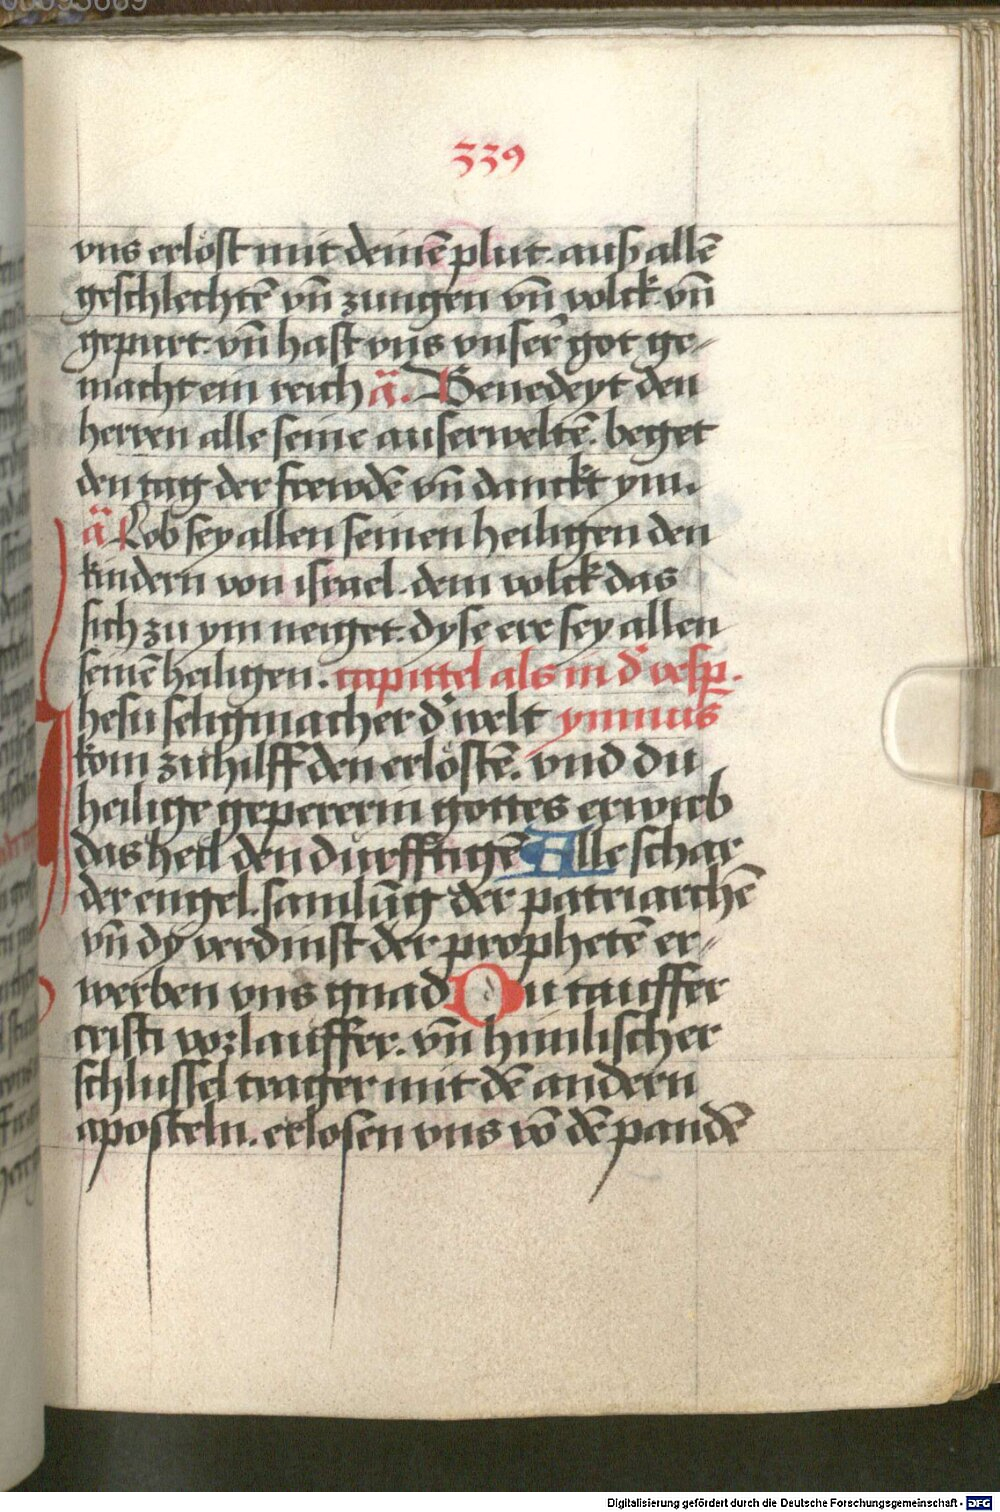 339
vns erlöst mit deinē plut. auß allē
geschlechtē vn̄ zungen vn̄ volck vn̄
gepurt. vn̄ hast vns vnser got ge-
macht ein reich ā. Benedeyt den
herren alle seine auserweltē. beget
den tag der frewdē vn̄ danckt ym.
ā Lob sey allen seinen heiligen den
kindern von israel. dem volck das
sich zu ym neiget. dyse ere sey allen
seinē heiligen. capittel als in d' vesp.
Jhesu seligmacher d' welt ymnus
kom zu hilff den erlöstē. vnd du
heilige gepererin gottes erwirb
das heil den dürfftigē Alle schar
der engel. samlūg der patriarchē
vn̄ dy verdinst der prophetē er-
werben vns gnad Du tauffer
cristi vorlauffer. vn̄ himlischer
schlussel trager mit dē andern
aposteln. erlosen vns vō dē pandē
Digitalisierung gefördert durch die Deutsche Forschungsgemeinschaft - DFG